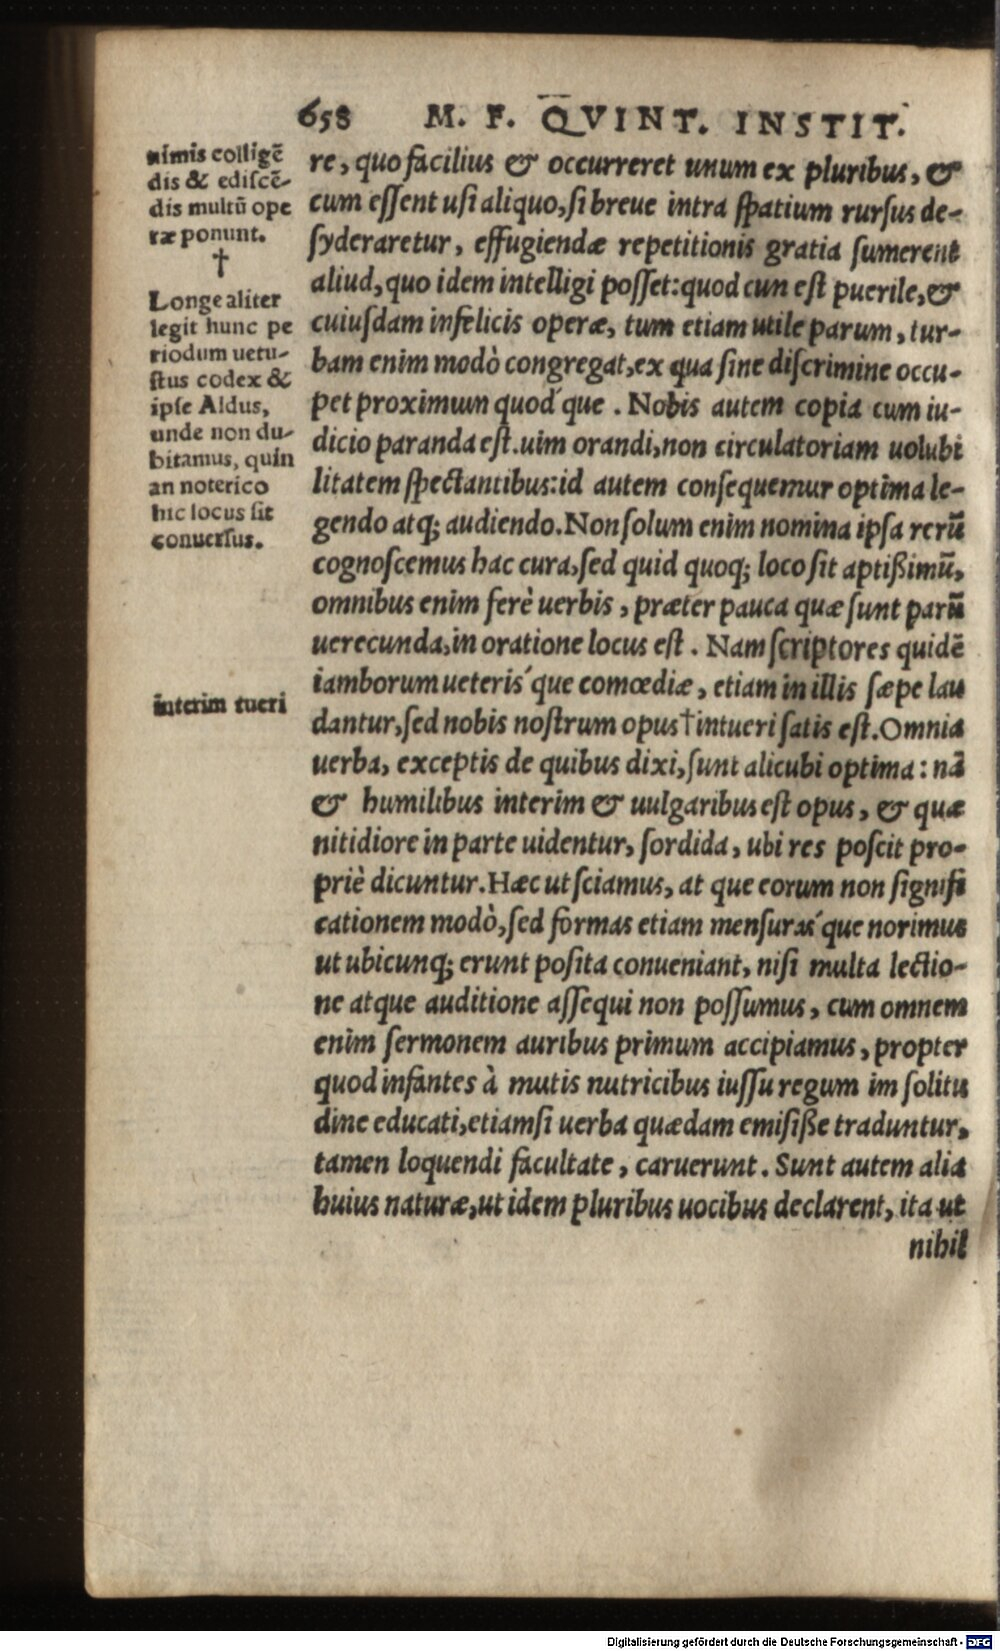 658 M. F. QVINT. INSTIT.
nimis colligē
dis & ediscē-
dis multū ope
ræ ponunt.
†
Longe aliter
legit hunc pe
riodum uetu-
stus codex &
ipse Aldus,
unde non du-
bitamus, quin
an noterico
hic locus sit
conuersus.
interim tueri
re, quo facilius & occurreret unum ex pluribus, &
cum essent usi aliquo, si breue intra spatium rursus de-
syderaretur, effugiendæ repetitionis gratia sumerent
aliud, quo idem intelligi posset: quod cun est puerile, &
cuiusdam infelicis operæ, tum etiam utile parum, tur-
bam enim modò congregat, ex qua sine discrimine occu-
pet proximum quod´que . Nobis autem copia cum iu-
dicio paranda est. uim orandi, non circulatoriam uolubi
litatem spectantibus: id autem consequemur optima le-
gendo atq; audiendo. Non solum enim nomina ipsa rerū
cognoscemus hac cura, sed quid quoq; loco sit aptißimū,
omnibus enim ferè uerbis, præter pauca quæ sunt parū
uerecunda, in oratione locus est . Nam scriptores quidē
iamborum ueteris´que comœdiæ, etiam in illis sæpe lau
dantur, sed nobis nostrum opus † intueri satis est. Omnia
uerba, exceptis de quibus dixi, sunt alicubi optima: nā
& humilibus interim & uulgaribus est opus, & quæ
nitidiore in parte uidentur, sordida, ubi res poscit pro-
priè dicuntur. Hæc ut sciamus, at que eorum non signifi
cationem modò, sed formas etiam mensuras´que norimus
ut ubicunq; erunt posita conueniant, nisi multa lectio-
ne atque auditione assequi non possumus, cum omnem
enim sermonem auribus primum accipiamus, propter
quod infantes à mutis nutricibus iussu regum im solitu
dine educati, etiamsi uerba quædam emisiße traduntur,
tamen loquendi facultate, caruerunt. Sunt autem alia
huius naturæ, ut idem pluribus uocibus declarent, ita ut
nihil
Digitalisierung gefördert durch die Deutsche Forschungsgemeinschaft - DFG